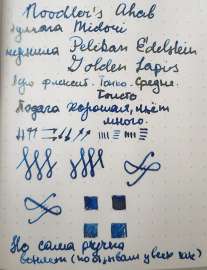 Noodler's Ahab
бумага Midori
чернила Pelikan Edelstein
Golden Lapis
Перо флексит. Тонко. Средне.
Толсто
Подача хорошая, льёт
много.
Но сама ручка
воняет (по отзывам у всех так)